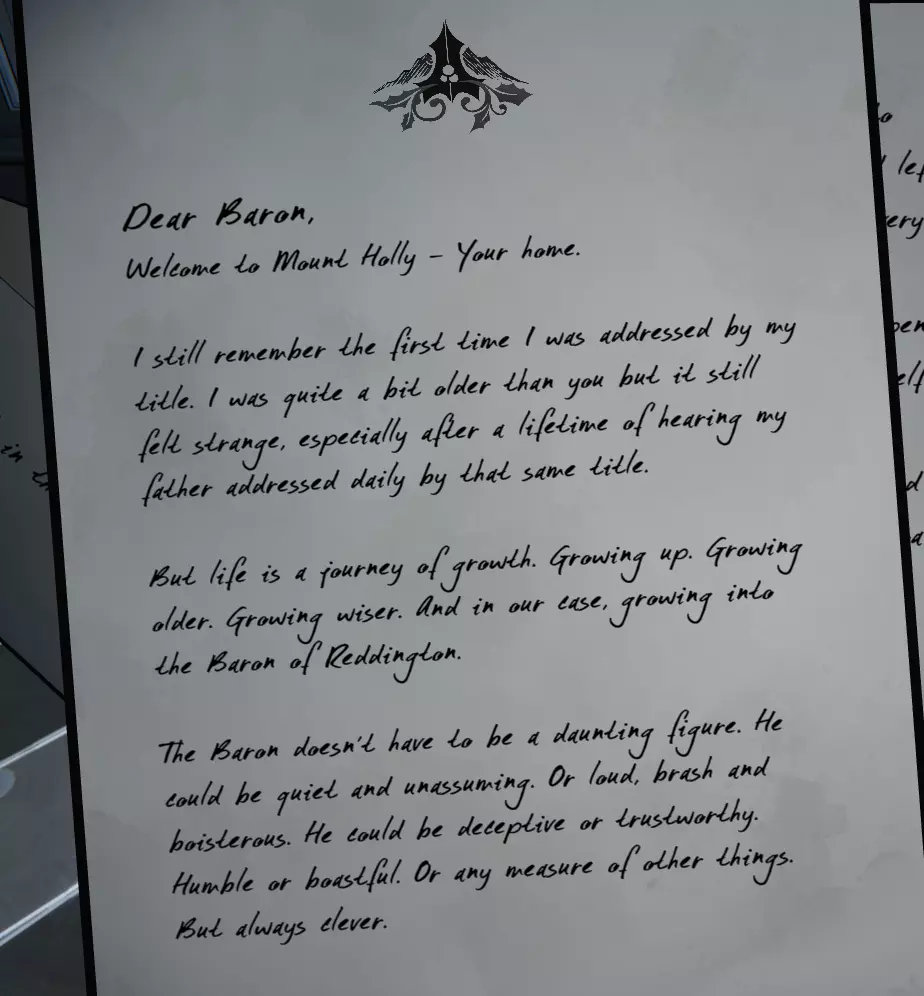 Dear Baron,
Welcome to Mount Holly – Your home.
I still remember the first time I was addressed by my
title. I was quite a bit older than you but it still
felt strange, especially after a lifetime of hearing my
father addressed daily by that same title.
But life is a journey of growth. Growing up. Growing
older. Growing wiser. And in our case, growing into
the Baron of Reddington.
The Baron doesn't have to be a daunting figure. He
could be quiet and unassuming. Or loud, brash and
boisterous. He could be deceptive or trustworthy.
Humble or boastful. Or any measure of other things.
But always clever.
in